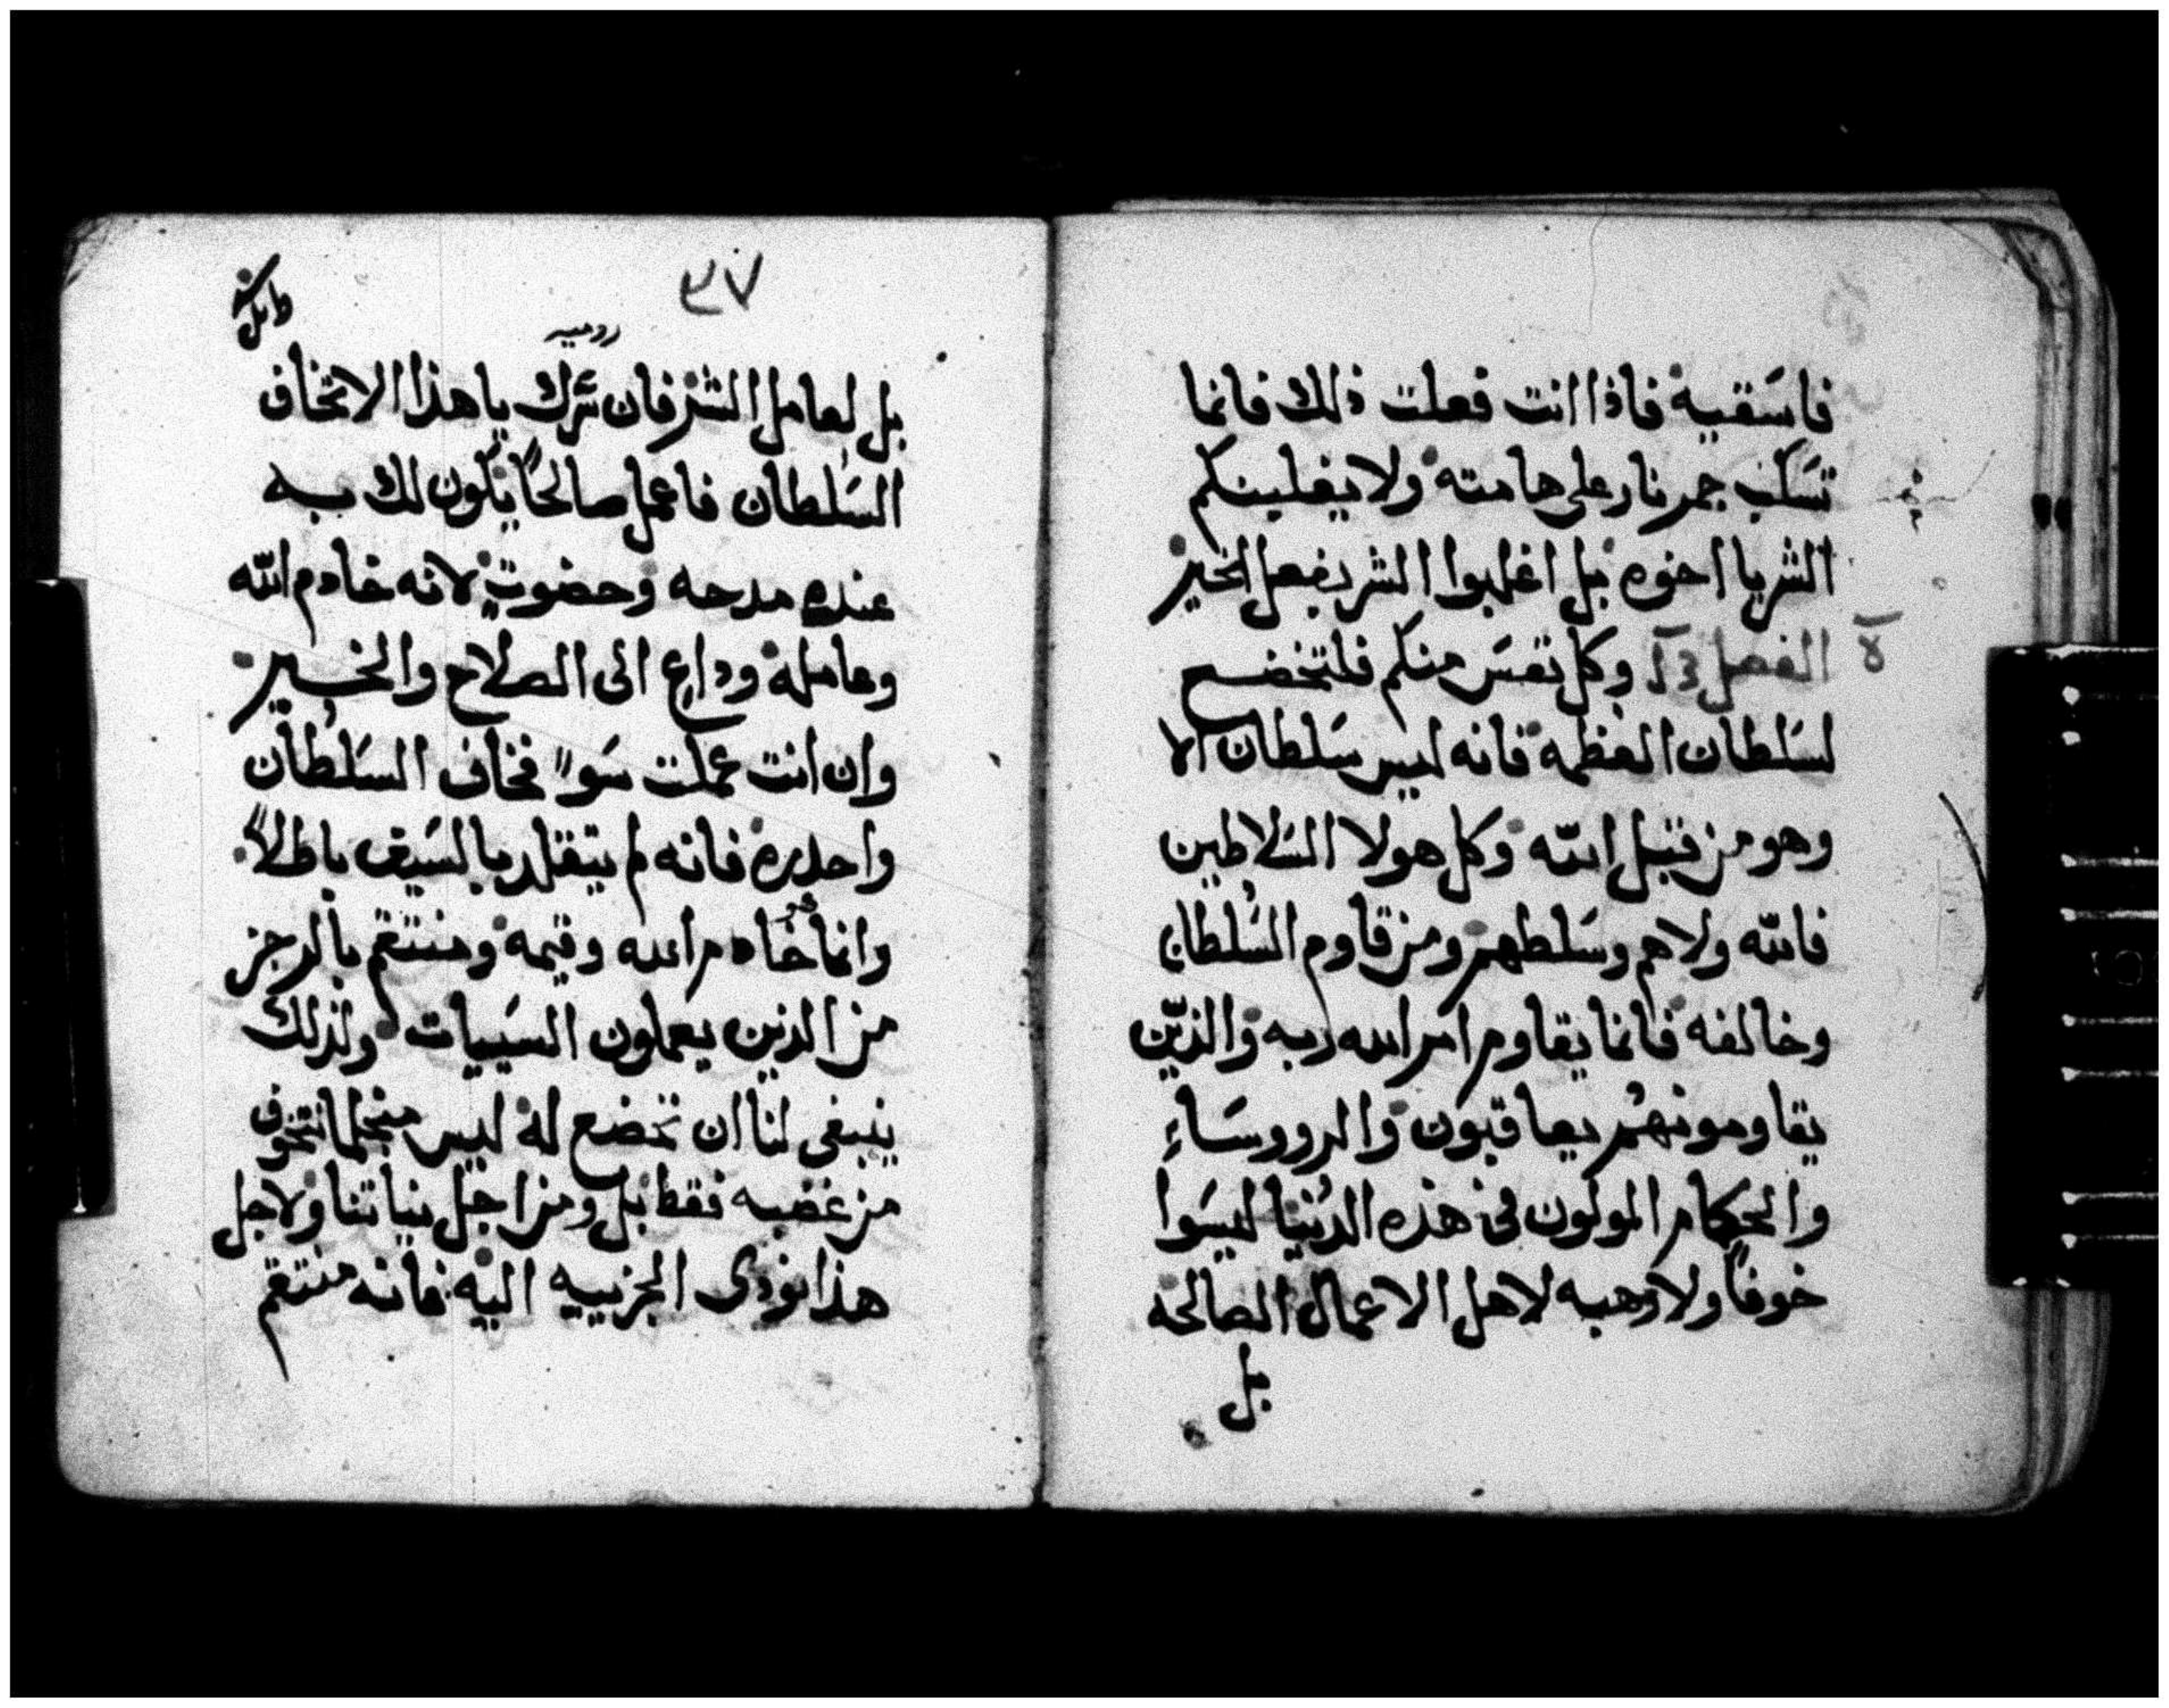 فاسَقيه فاذا انت فعلت ذلك فانما
تسَكب جمر نار على هامته ولا يغلبنكم
الشر يا اخوه بل اغلبوا الشر بفعل الخير
الفصل وكل نفسَ منكم فلتخضع
لسَلطان العظمه فانه ليس سَلطان الا
وهو من قبل الله وكل هولا السَلاطين
فالله ولاهم وسَلطهم ومن قاوم السُلطان
وخالفه فانما يقاوم امر الله ربه والذين
يقاومونهم يعاقبون والرووسَاء
والحكام المولون في هذه الدنيا ليسَوا
خوفاً ولا رهبه لاهل الاعمال الصالحه
بل
٣٧
روميه
بل لعامل الشر فان سَرك يا هذا الا تخاف
السَلطان فاعمل صالحاً يكون لك به
عنده مدحه وحضوت لانه خادم الله
وعامله وداع الى الصلاح والخير
وان انت عملت سَواً فخاف السَلطان
واحدره فانه لم يتقلد بالسَيف باطلاً
وانما هو خادم الله وقيمه ومنتقم بالرجز
من الذين يعملون السَييات ولذلك
ينبغي لنا ان نخضع له ليس من اجل ما نتخوف
من غضبه فقط بل ومن اجل نياتنا ولاجل
هذا نودى الجزييه اليه فانه منتقم